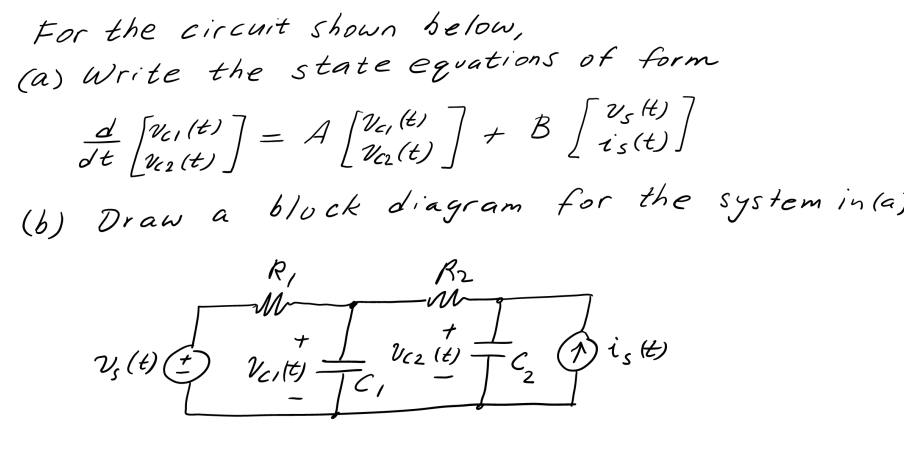 For the circuit shown below,
(a) Write the state equations of form
d/dt [vc1(t) vc2(t)] = A [vc1(t) vc2(t)] + B [vs(t) is(t)]
(b) Draw a block diagram for the system in (a)
R1 R2
vs(t) + - + vc1(t) - C1 + vc2(t) - C2 is(t)